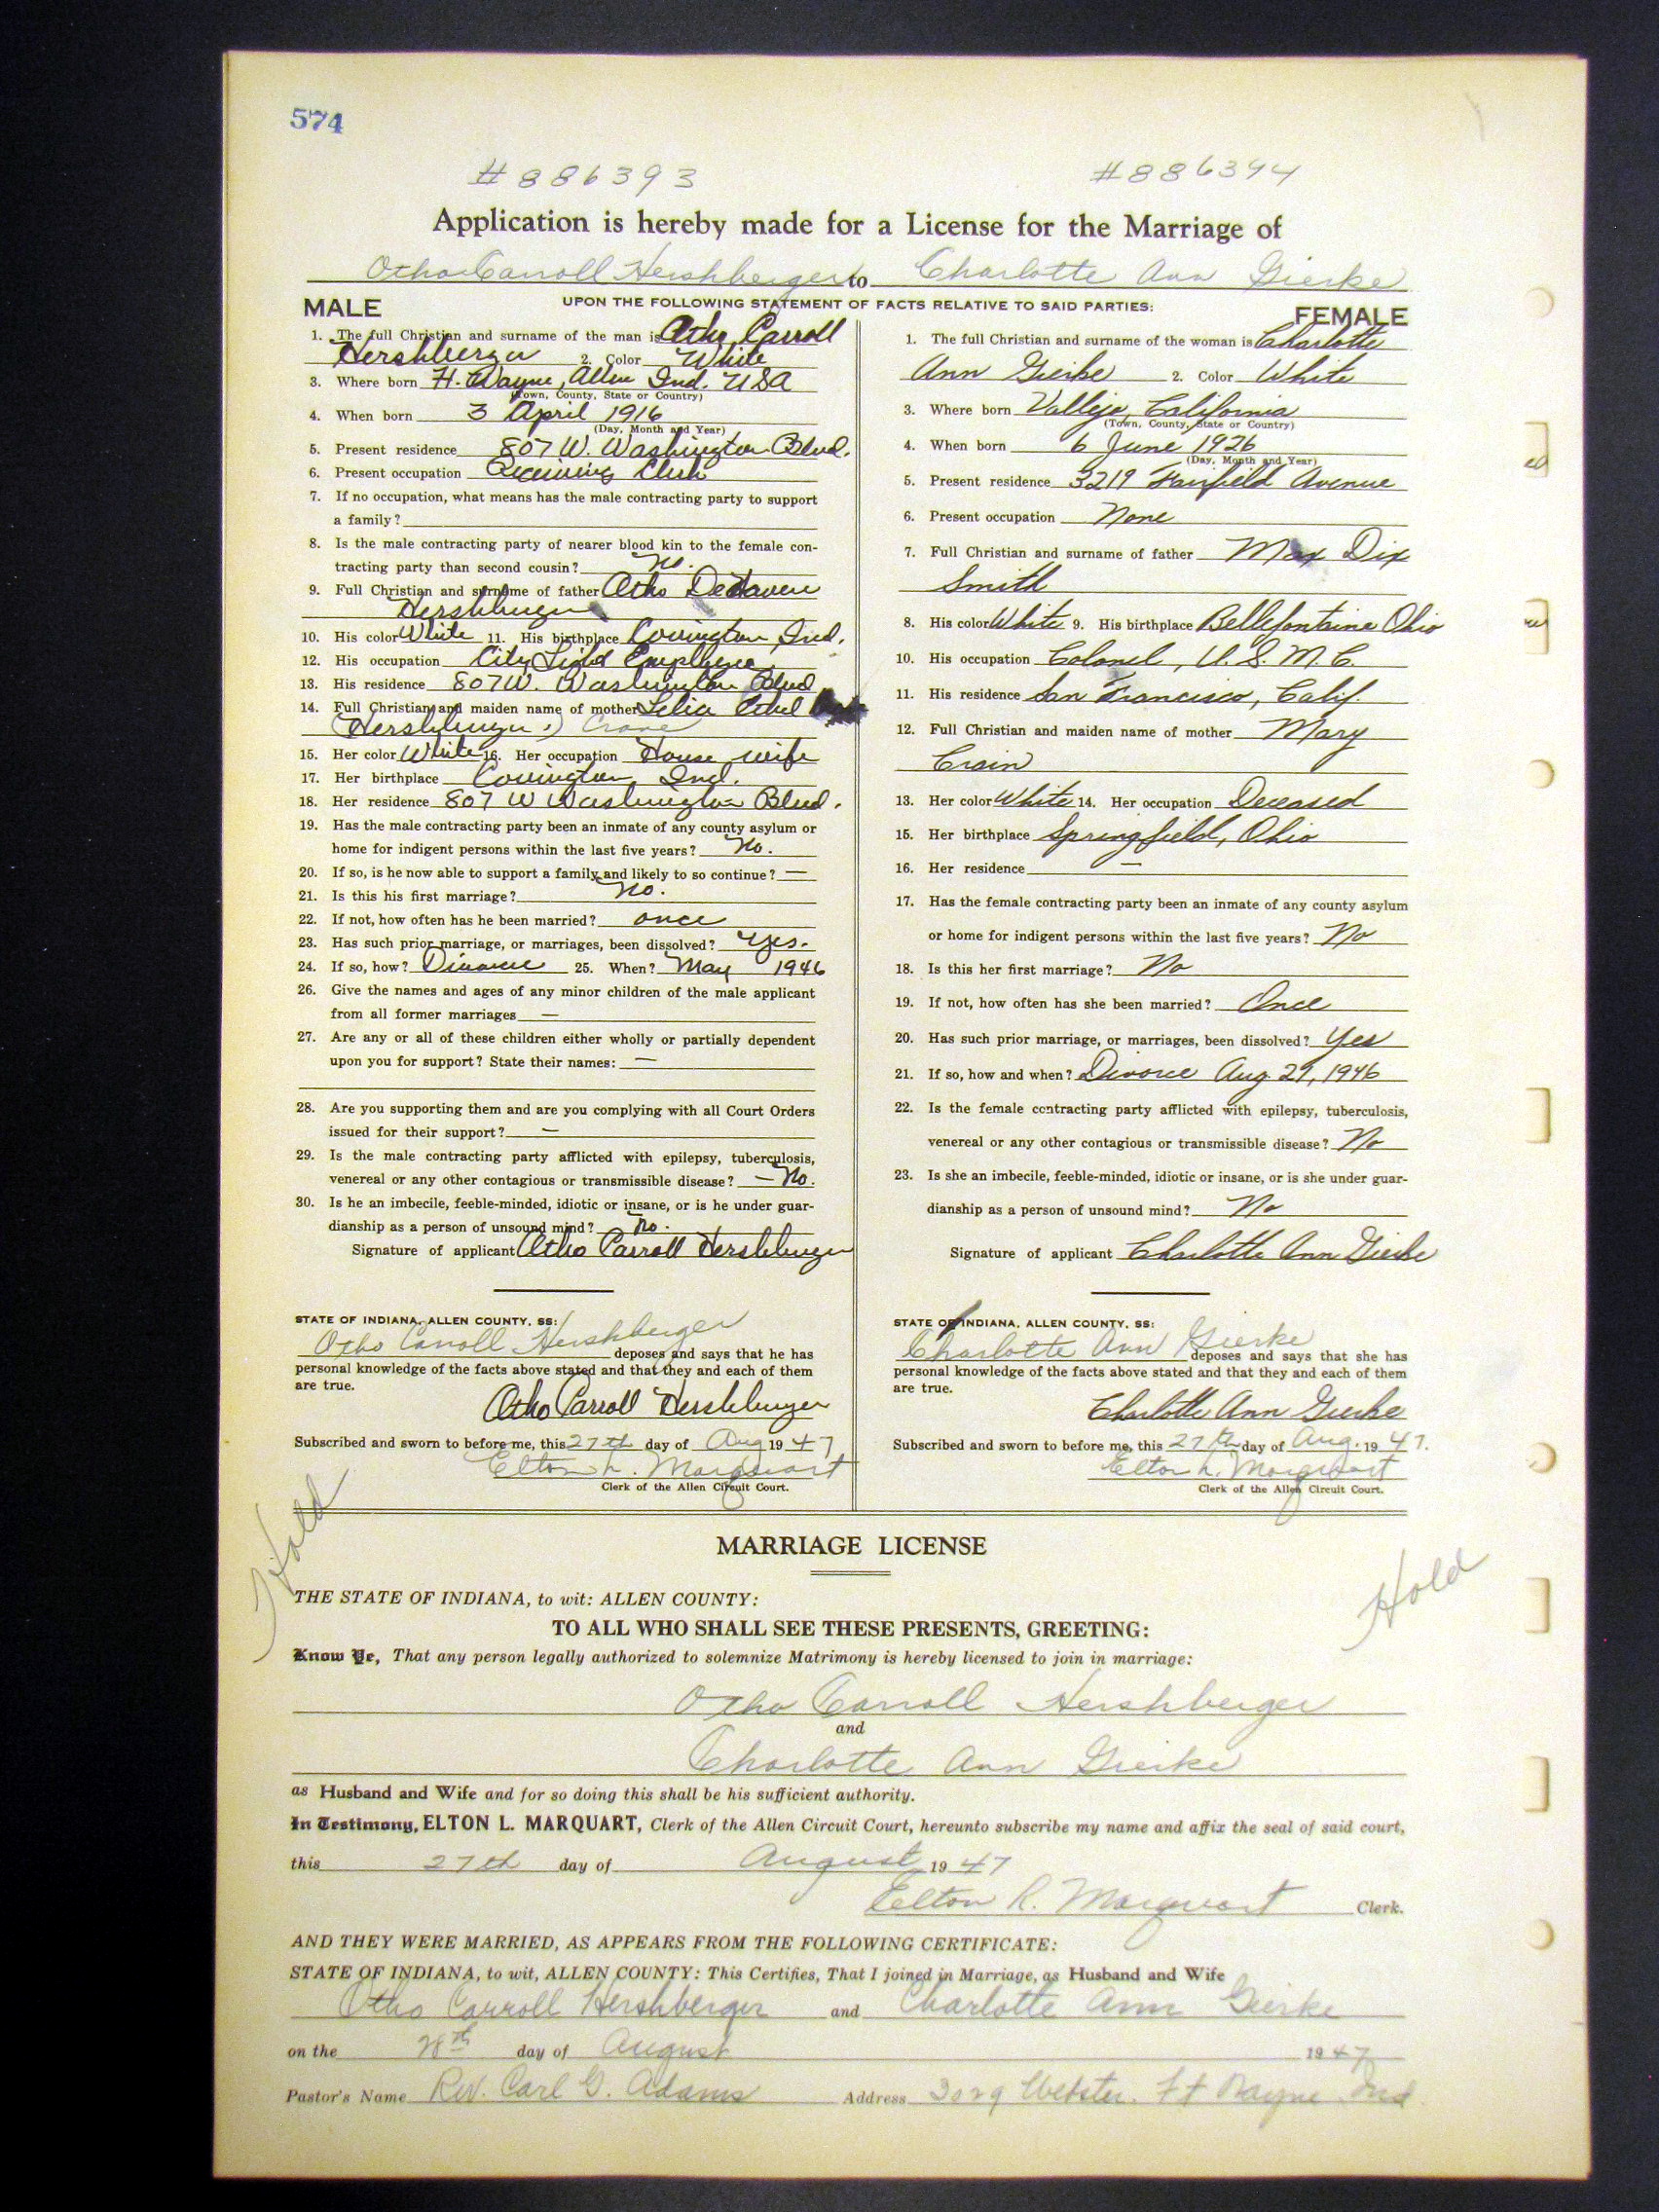 574
#886393 #886394
Application is hereby made for a License for the Marriage of
Otho Carroll Hershberger to Charlotte Ann Gierke
UPON THE FOLLOWING STATEMENT OF FACTS RELATIVE TO SAID PARTIES:
MALE
1. The full Christian and surname of the man is Otho Carroll
Hershberger 2. Color White
3. Where born Ft. Wayne, Allen Ind. USA
(Town, County, State or Country)
4. When born 3 April 1916
(Day, Month and Year)
5. Present residence 807 W. Washington Blvd.
6. Present occupation Receiving Clerk
7. If no occupation, what means has the male contracting party to support
a family?
8. Is the male contracting party of nearer blood kin to the female con-
tracting party than second cousin? No.
9. Full Christian and surname of father Otho DeHaven
Hershberger
10. His color White 11. His birthplace Covington, Ind.
12. His occupation City Light Employee
13. His residence 807 W. Washington Blvd
14. Full Christian and maiden name of mother Lelia Ethel
(Hershberger.) Crane
15. Her color White 16. Her occupation House wife
17. Her birthplace Covington, Ind.
18. Her residence 807 W Washington Blvd.
19. Has the male contracting party been an inmate of any county asylum or
home for indigent persons within the last five years? No.
20. If so, is he now able to support a family and likely to so continue? —
21. Is this his first marriage? No.
22. If not, how often has he been married? once
23. Has such prior marriage, or marriages, been dissolved? Yes.
24. If so, how? Divorce 25. When? May 1946
26. Give the names and ages of any minor children of the male applicant
from all former marriages —
27. Are any or all of these children either wholly or partially dependent
upon you for support? State their names: —
28. Are you supporting them and are you complying with all Court Orders
issued for their support? —
29. Is the male contracting party afflicted with epilepsy, tuberculosis,
venereal or any other contagious or transmissible disease? — No.
30. Is he an imbecile, feeble-minded, idiotic or insane, or is he under guar-
dianship as a person of unsound mind? No.
Signature of applicant Otho Carroll Hershberger
STATE OF INDIANA, ALLEN COUNTY, SS:
Otho Carroll Hershberger
deposes and says that he has
personal knowledge of the facts above stated and that they and each of them
are true.
Otho Carroll Hershberger
Subscribed and sworn to before me, this 27th day of Aug 1947
Elton L. Marquart
Clerk of the Allen Circuit Court.
FEMALE
1. The full Christian and surname of the woman is Charlotte
Ann Gierke 2. Color White
3. Where born Vallejo, California
(Town, County, State or Country)
4. When born 6 June 1926
(Day, Month and Year)
5. Present residence 3219 Fairfield Avenue
6. Present occupation None
7. Full Christian and surname of father Max Dix
Smith
8. His color White 9. His birthplace Bellefontaine Ohio
10. His occupation Colonel, U.S.M.C.
11. His residence San Francisco, Calif.
12. Full Christian and maiden name of mother Mary
Crain
13. Her color White 14. Her occupation Deceased
15. Her birthplace Springfield, Ohio
16. Her residence —
17. Has the female contracting party been an inmate of any county asylum
or home for indigent persons within the last five years? No
18. Is this her first marriage? No
19. If not, how often has she been married? Once
20. Has such prior marriage, or marriages, been dissolved? Yes
21. If so, how and when? Divorce Aug 29, 1946
22. Is the female contracting party afflicted with epilepsy, tuberculosis,
venereal or any other contagious or transmissible disease? No
23. Is she an imbecile, feeble-minded, idiotic or insane, or is she under guar-
dianship as a person of unsound mind? No
Signature of applicant Charlotte Ann Gierke
STATE OF INDIANA, ALLEN COUNTY, SS:
Charlotte Ann Gierke
deposes and says that she has
personal knowledge of the facts above stated and that they and each of them
are true.
Charlotte Ann Gierke
Subscribed and sworn to before me, this 27th day of Aug. 1947.
Elton L. Marquart
Clerk of the Allen Circuit Court.
Hold
Hold
MARRIAGE LICENSE
THE STATE OF INDIANA, to wit: ALLEN COUNTY:
TO ALL WHO SHALL SEE THESE PRESENTS, GREETING:
Know Ye, That any person legally authorized to solemnize Matrimony is hereby licensed to join in marriage:
Otho Carroll Hershberger
and
Charlotte Ann Gierke
as Husband and Wife and for so doing this shall be his sufficient authority.
In Testimony, ELTON L. MARQUART, Clerk of the Allen Circuit Court, hereunto subscribe my name and affix the seal of said court,
this 27th day of August 1947
Elton L. Marquart Clerk.
AND THEY WERE MARRIED, AS APPEARS FROM THE FOLLOWING CERTIFICATE:
STATE OF INDIANA, to wit, ALLEN COUNTY: This Certifies, That I joined in Marriage, as Husband and Wife
Otho Carroll Hershberger and Charlotte Ann Gierke
on the 28th day of August 1947
Pastor's Name Rev. Carl G. Adams Address 3029 Webster. Ft Wayne Ind